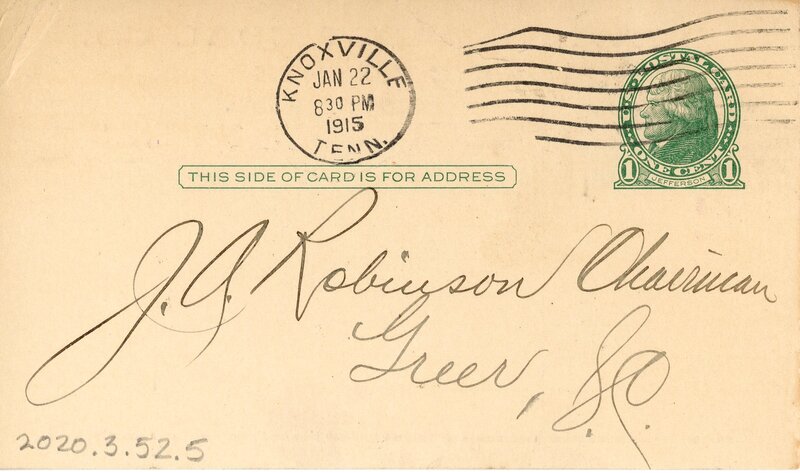 KNOXVILLE
JAN 22
8 30 PM
1915
TENN.
U.S. POSTAL CARD
ONE CENT
1 1
JEFFERSON
THIS SIDE OF CARD IS FOR ADDRESS
J. A. Robinson Chairman
Greer, S.C.
2020.3.52.5